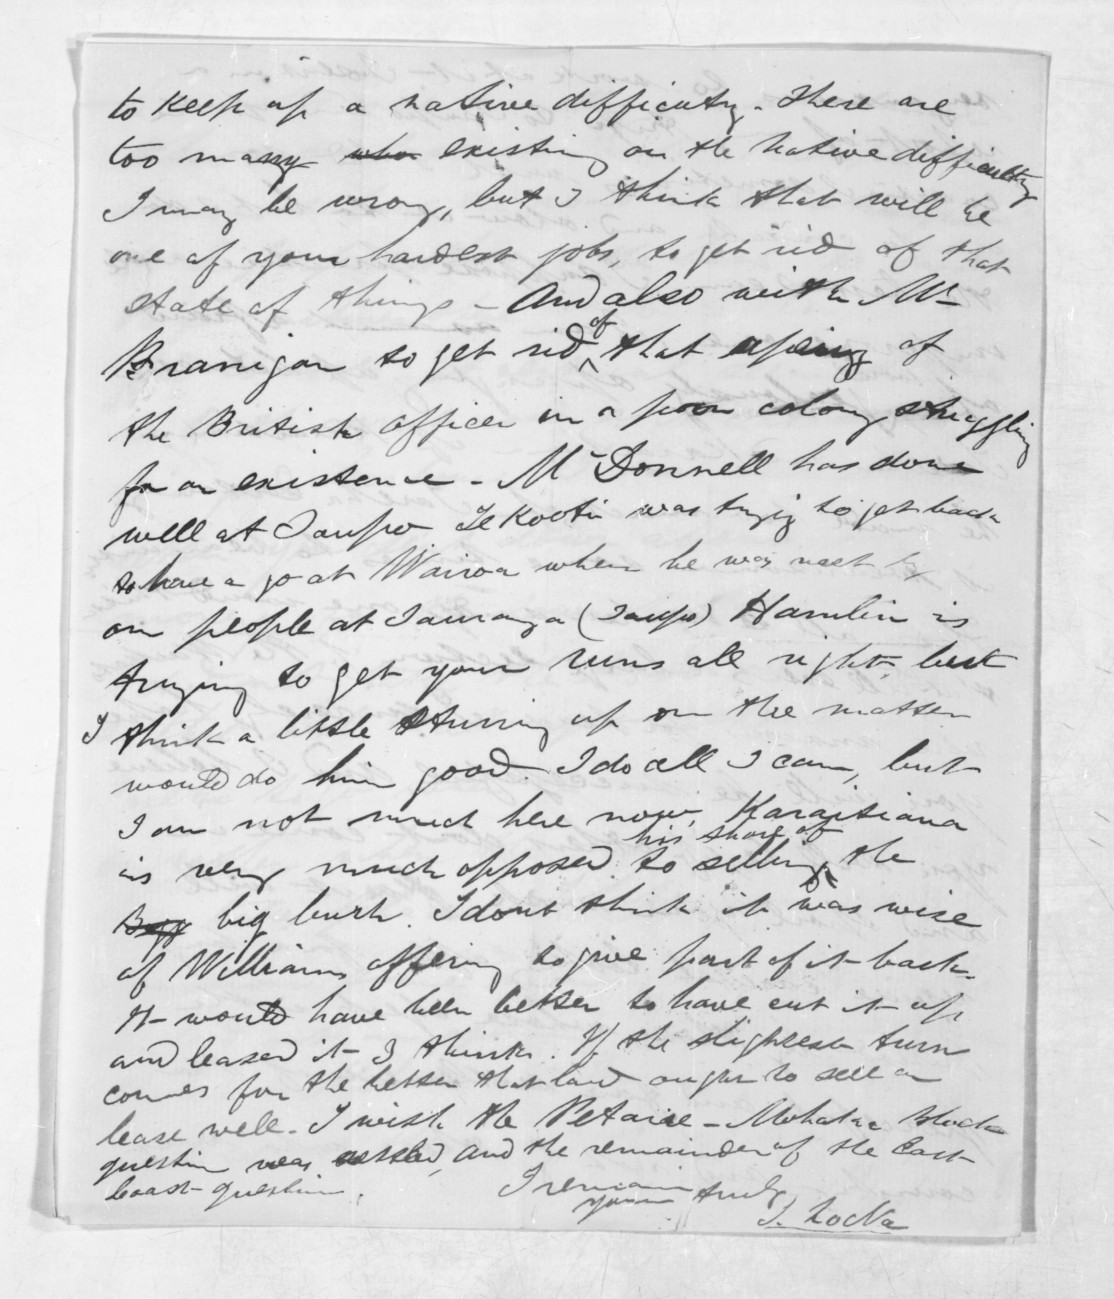 to keep up a native difficulty. There are
too many existing on the native difficulty
I may be wrong, but I think that will be
one of your hardest jobs, to get rid of that
state of things - And also with Mr
Branigan to get rid of that apeing of
the British officer in a poor colony struggling
for an existence - McDonnell has done
well at Taupo Te Kooti was trying to get back
to have a go at Wairoa when he was met by
our people at Tauranga (Taupo) Hamlin is
trying to get your runs all right, but
I think a little stirring up on the matter
would do him good. I do all I can, but
I am not much here now. Karaitiana
is very much opposed to selling his share of the
big bush. I dont think it was wise
of Williams offering to give part of it back.
It would have been better to have cut it up
and leased it I think. If the slightest turn
comes for the better that land ought to sell or
lease well. I wish the Petane - Mohaka block
question was settled, and the remainder of the East
Coast question.
I remain
yours truly
S. Locke